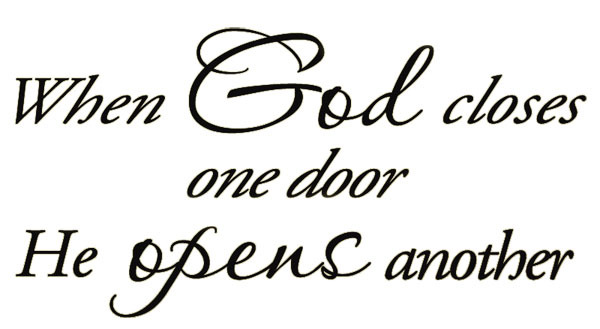 When God closes
one door
He opens another